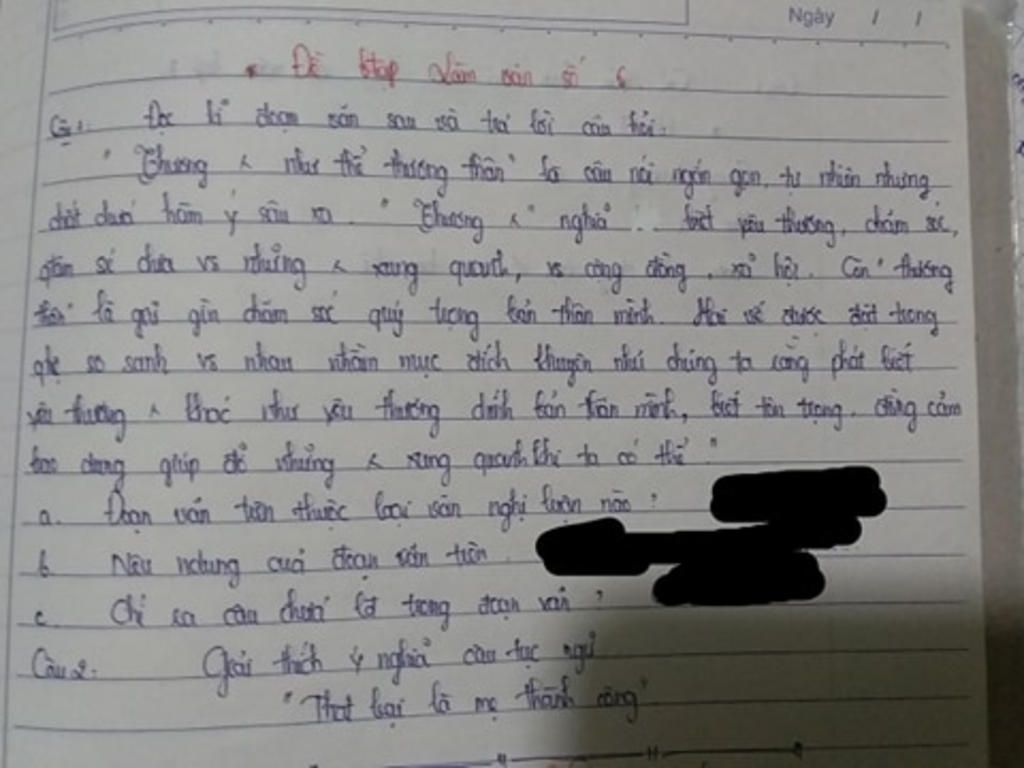 Ngày / /
Đề btập Văn bản số 6
Câu 1. Đọc kĩ đoạn văn sau và trả lời câu hỏi.
"Thương ng như thể thương thân" là câu nói ngắn gọn, tự nhiên nhưng
chất chứa hàm ý sâu xa. "Thương ng" nghĩa biết yêu thương, chăm sóc,
vs những ng xung quanh, vs cộng đồng, xã hội. Còn "thương
thân" là giữ gìn chăm sóc quý trọng bản thân mình. Hai vế được đặt trong
so sanh vs nhau nhằm mục đích khuyên nhủ chúng ta cũng phải biết
yêu thương ng khác như yêu thương chính bản thân mình, biết tôn trọng, đồng cảm
bao dung giúp đỡ những ng xung quanh khi ta có thể"
a. Đoạn văn trên thuộc loại văn nghị luận nào?
b. Nêu ndung của đoạn văn trên.
c. Chỉ ra câu chưa trong đoạn văn?
Câu 2. Giải thích ý nghĩa câu tục ngữ
"Thất bại là mẹ thành công"